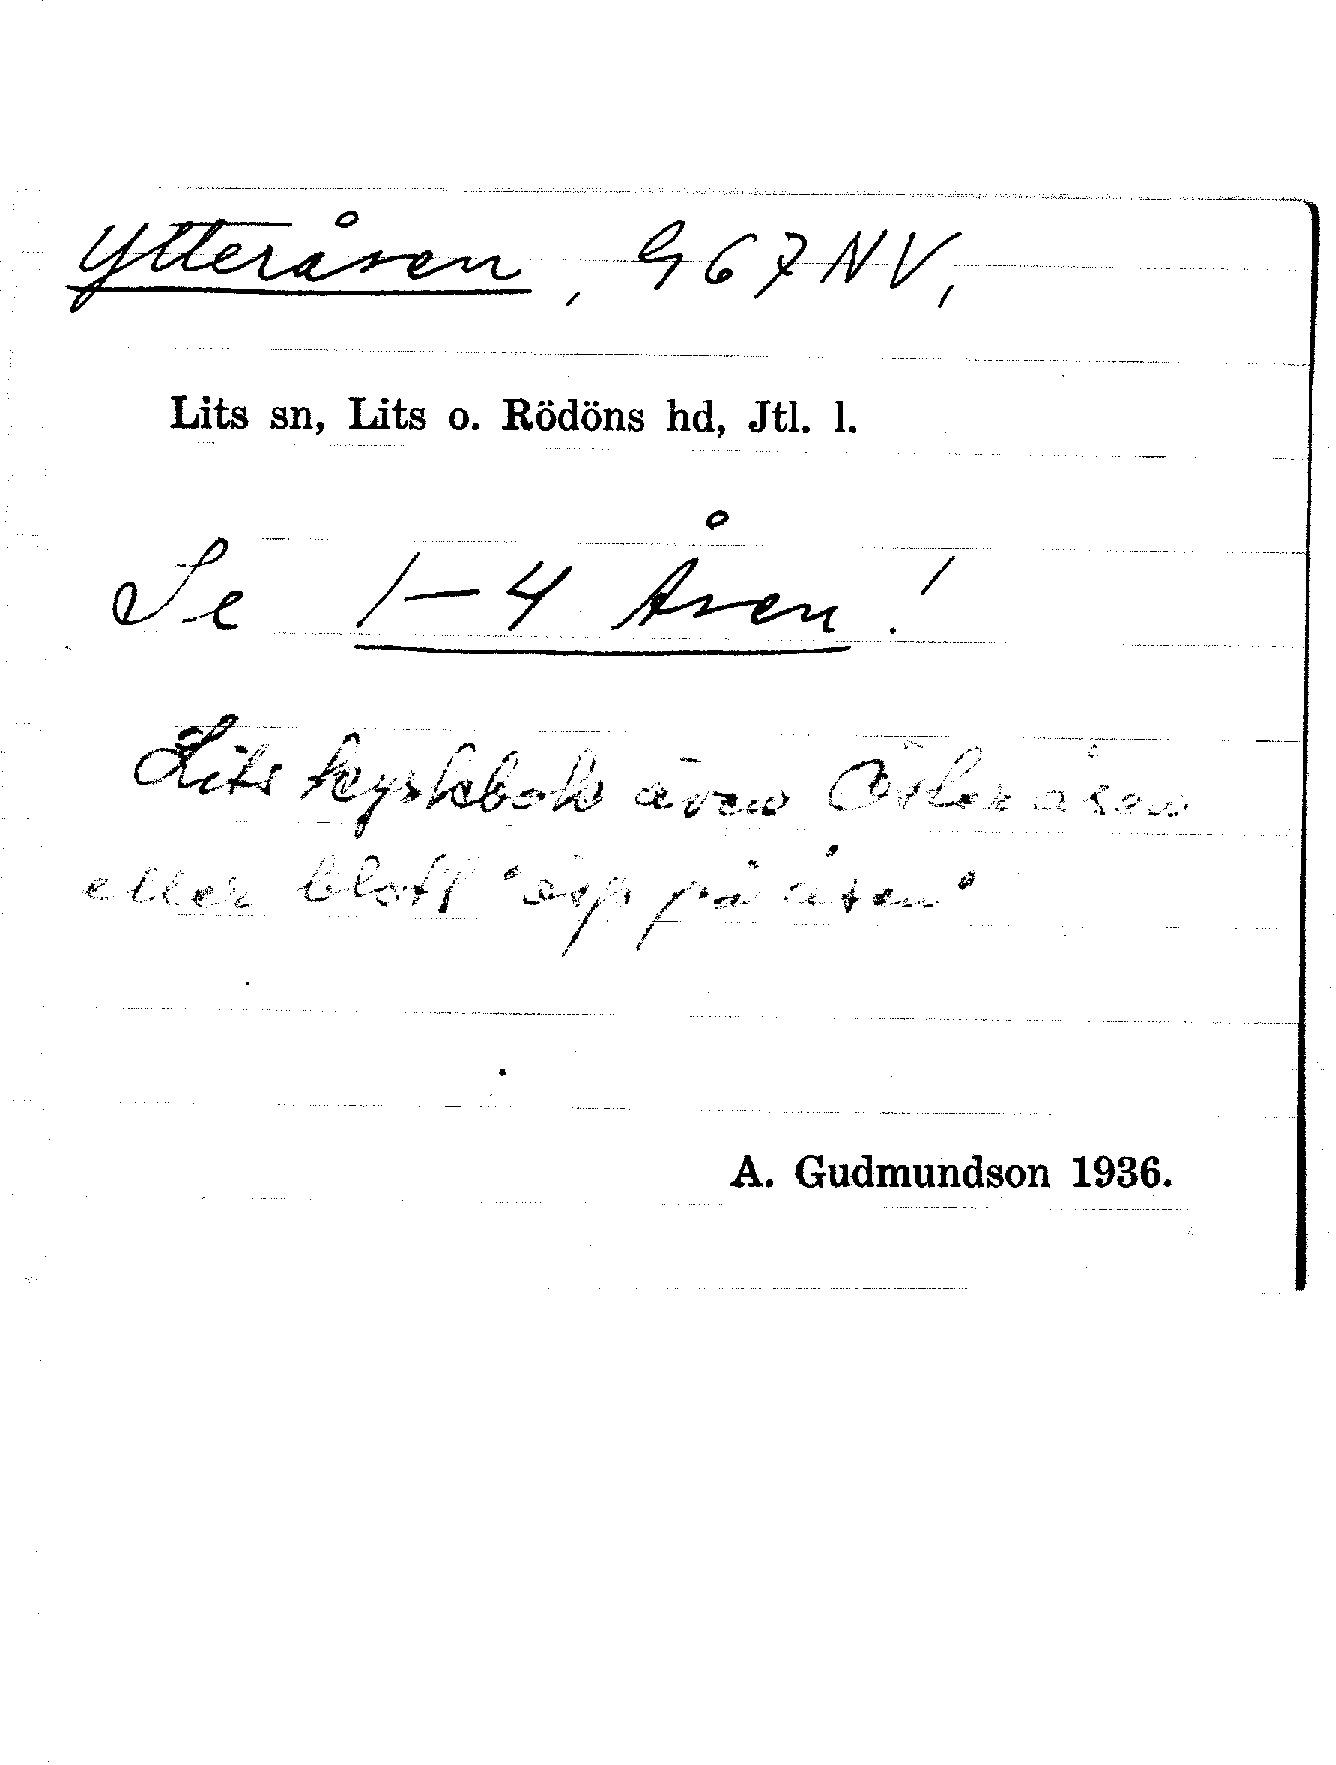 Ytteråsen, G67NV,
Lits sn, Lits o. Rödöns hd, Jtl. l.
Se 1-4 Åsen!
Lits kyrkbok även Österåsen
eller blott "öpp på åsen"
A. Gudmundson 1936.